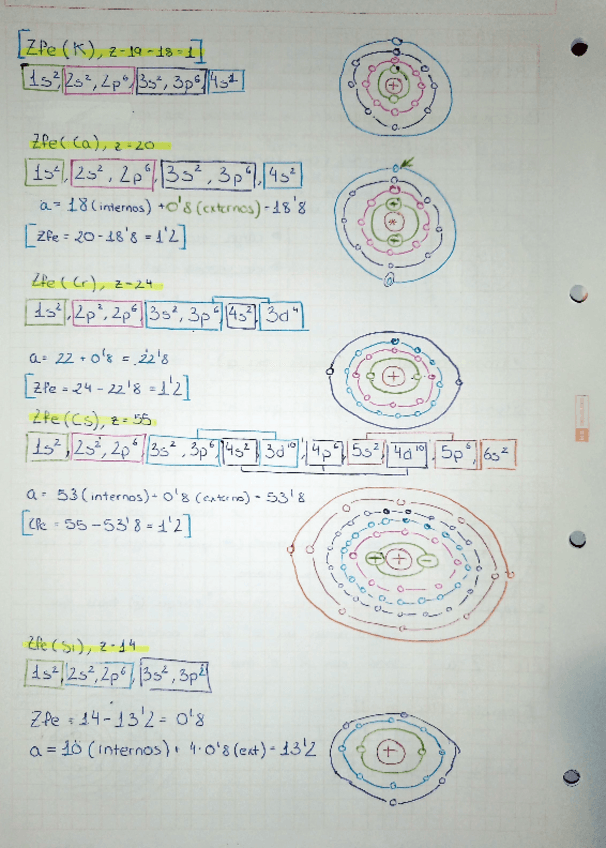 [Zfe (K), z-19-18=1]
1s², 2s², 2p⁶, 3s², 3p⁶, 4s¹
Zfe (Ca), z=20
1s², 2s², 2p⁶, 3s², 3p⁶, 4s²
a = 18 (internos) + 0'8 (externos) = 18'8
[Zfe = 20 - 18'8 = 1'2]
Zfe (Cr), z=24
1s², 2p², 2p⁶, 3s², 3p⁶, 4s², 3d⁴
a = 22 + 0'8 = 22'8
[Zfe = 24 - 22'8 = 1'2]
Zfe (Cs), z=55
1s², 2s², 2p⁶, 3s², 3p⁶, 4s², 3d¹⁰, 4p⁶, 5s², 4d¹⁰, 5p⁶, 6s²
a = 53 (internos) + 0'8 (externo) = 53'8
[Zfe = 55 - 53'8 = 1'2]
Zfe (Si), z=14
1s², 2s², 2p⁶, 3s², 3p²
Zfe = 14 - 13'2 = 0'8
a = 10 (internos) + 4·0'8 (ext) = 13'2